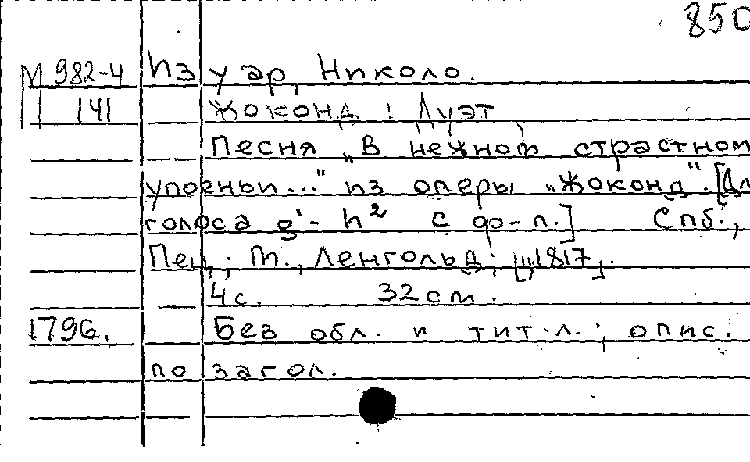 850
М 982-4 Изуар, Николо.
141 Жоконд: Дуэт
Песня „В нежном страстном
упоеньи..." из оперы „Жоконд". [Дл
голоса g¹- h² с ф-п.] Спб.,
Пец,; т., Ленгольд; [,1817,
4 с. 32 см.
1796. Без обл. и тит. л.; опис.
по загол.